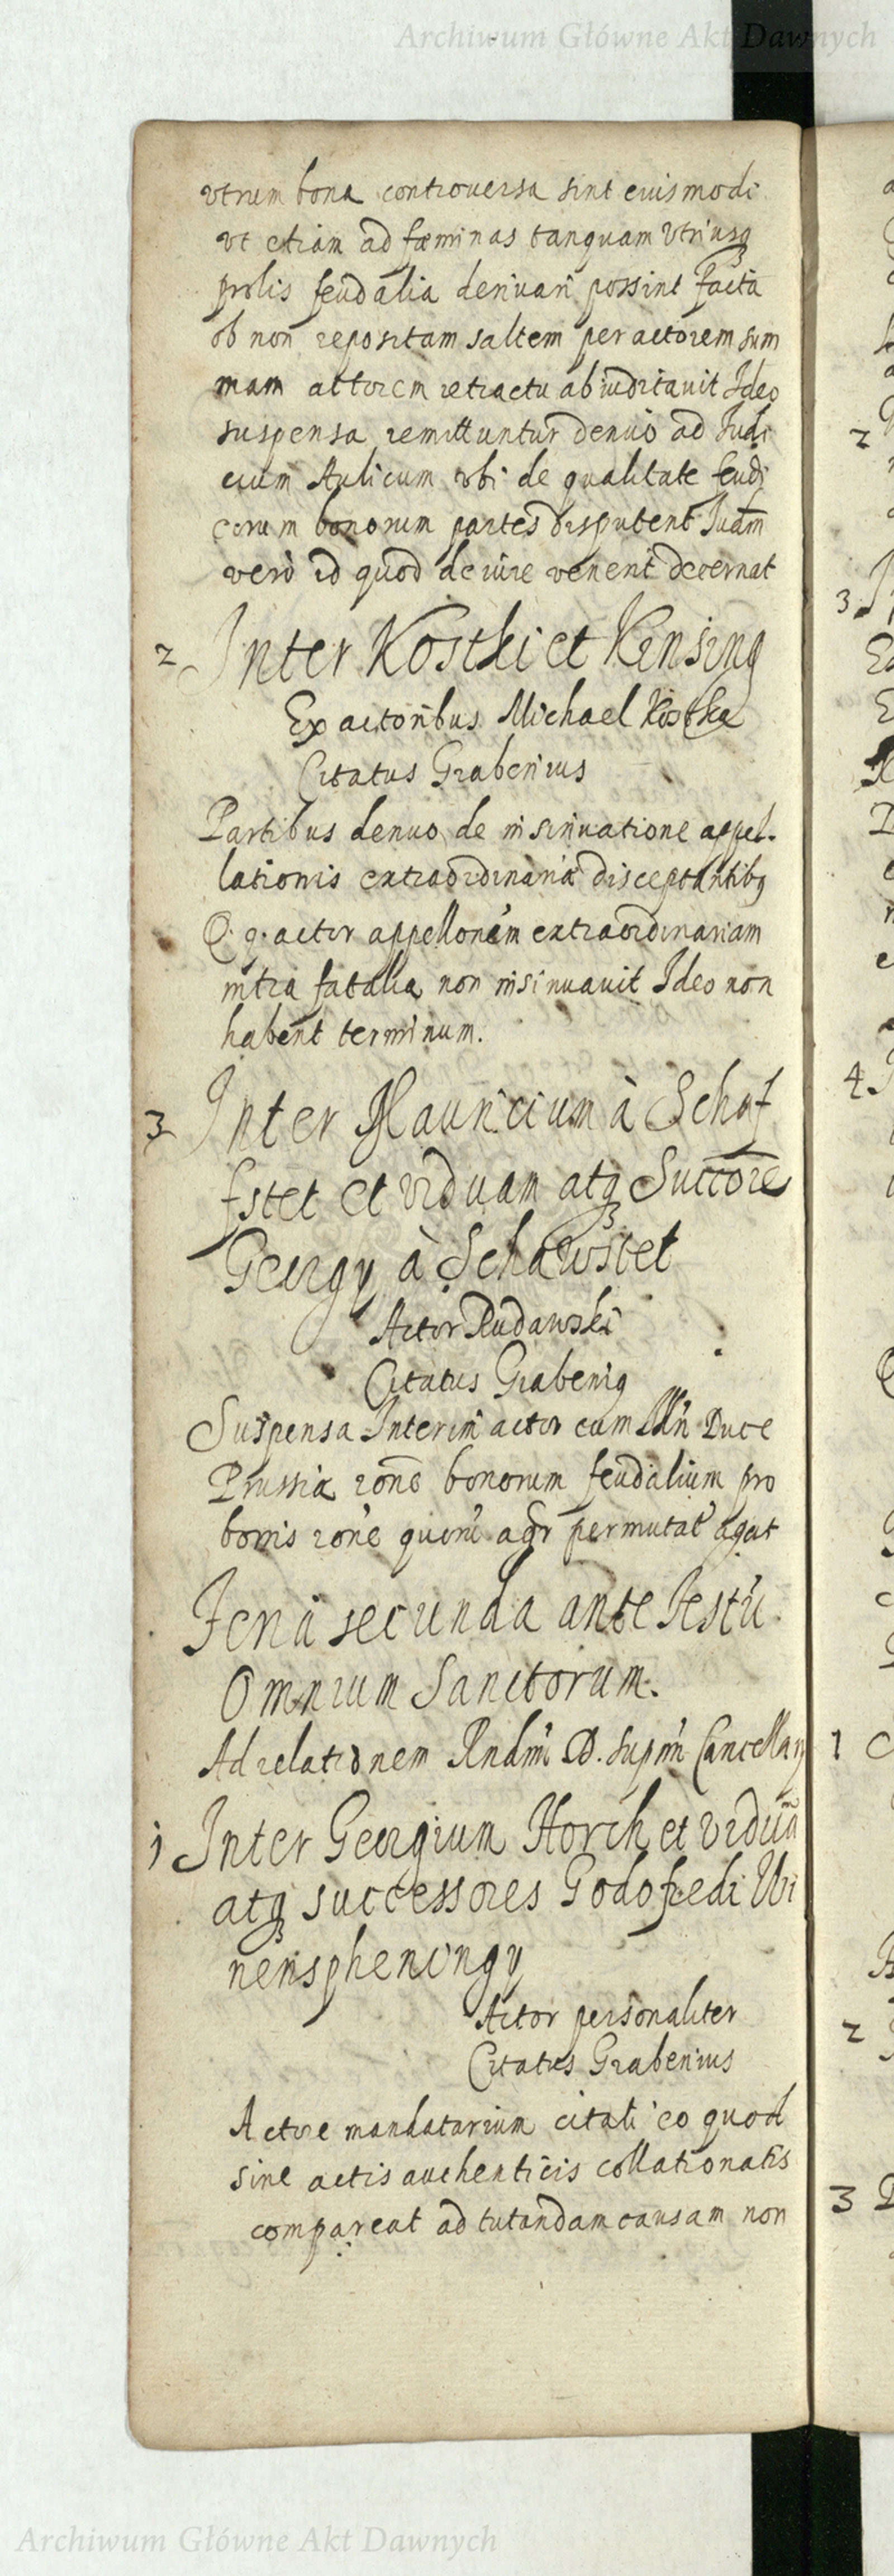 Archiwum Główne Akt Dawnych
vtrum bona controuersa sint eiusmodi
vt etiam ad fæminas tanquam vtriusq
prolis feudalia deriuari possint facta
ob non repositam saltem per actorem sum
mam actorem retractu abiudicauit Ideo
suspensa remittuntur denuo ad Iudi
cium Aulicum vbi de qualitate feudi
eorum bonorum partes disputent Iudm
vero id quod de iure venerit decernat
2 Inter Kostki et Kensing
Ex actoribus Michael Kostka
Citatus Grabenius
Partibus denuo de insinuatione appel-
lationis extraordinariæ disceptantibq
Q. q. actor appellonem extraordinariam
intra fatalia non insinuauit Ideo non
habent terminum.
3 Inter Mauricium à Schaf
fstet et viduam atq Succores
Georgy à Schawstet
Actor Rudawski
Citatus Grabeniq
Suspensa Interim actor cum Illn Duce
Prussiæ rone bonorum feudalium pro
bonis rone quoru agr permutat agat
Feria secunda ante Festu
Omnium Sanctorum.
Ad relationem Rndmi D. supmi Cancellary
1 Inter Georgium Horch et viduã
atq successores Godofredi Wi
nenspheningy
Actor personaliter
Citatus Grabenius
Actore mandatarium citati eo quod
sine actis authenticis collationatis
compareat ad tutandam causam non
Archiwum Główne Akt Dawnych